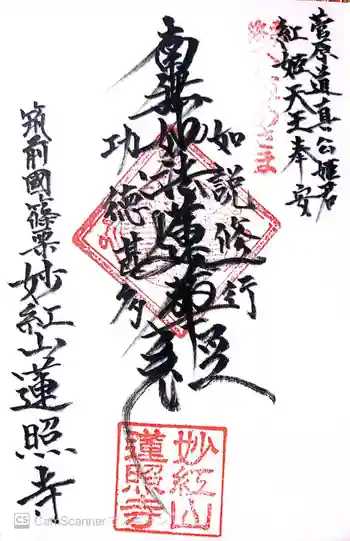 菅原道真公姫君
紅姫天王奉安
如説修行
南無妙法蓮華経
功徳甚多
筑前國篠栗妙紅山蓮照寺
妙紅山
蓮照寺
CS CamScanner